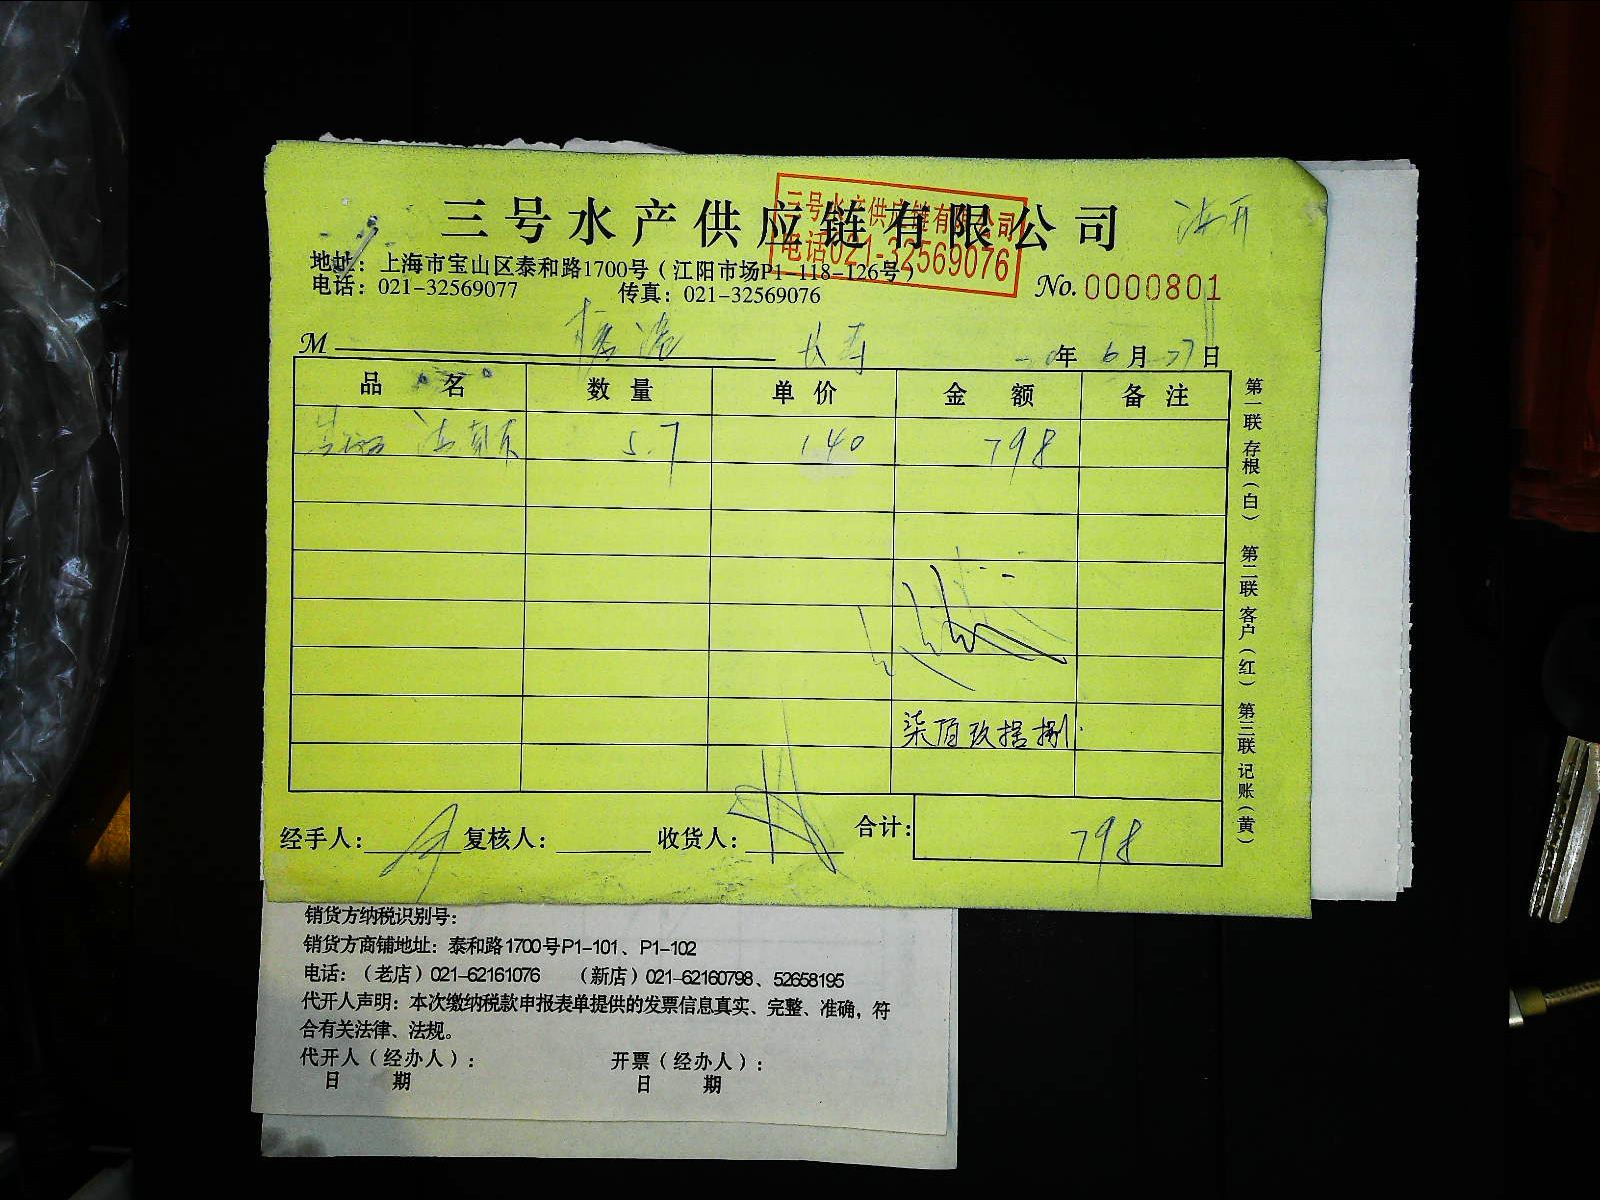 三号水产供应链有限公司
三号水产供应链有限公司
电话021-32569076
地址：上海市宝山区泰和路1700号（江阳市场P1-118-126号）
电话：021-32569077 传真：021-32569076
No.0000801
M 长寿 年 6月27日
品名 数量 单价 金额 备注
5.7 140 798
柒佰玖拾捌
经手人： 复核人： 收货人： 合计： 798
第一联 存根（白） 第二联 客户（红） 第三联 记账（黄）
销货方纳税识别号：
销货方商铺地址：泰和路1700号P1-101、P1-102
电话：（老店）021-62161076 （新店）021-62160798、52658195
代开人声明：本次缴纳税款申报表单提供的发票信息真实、完整、准确，符
合有关法律、法规。
代开人（经办人）： 开票（经办人）：
日 期 日 期